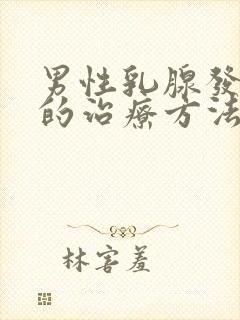 男性乳腺發
的治療方法
林害羞